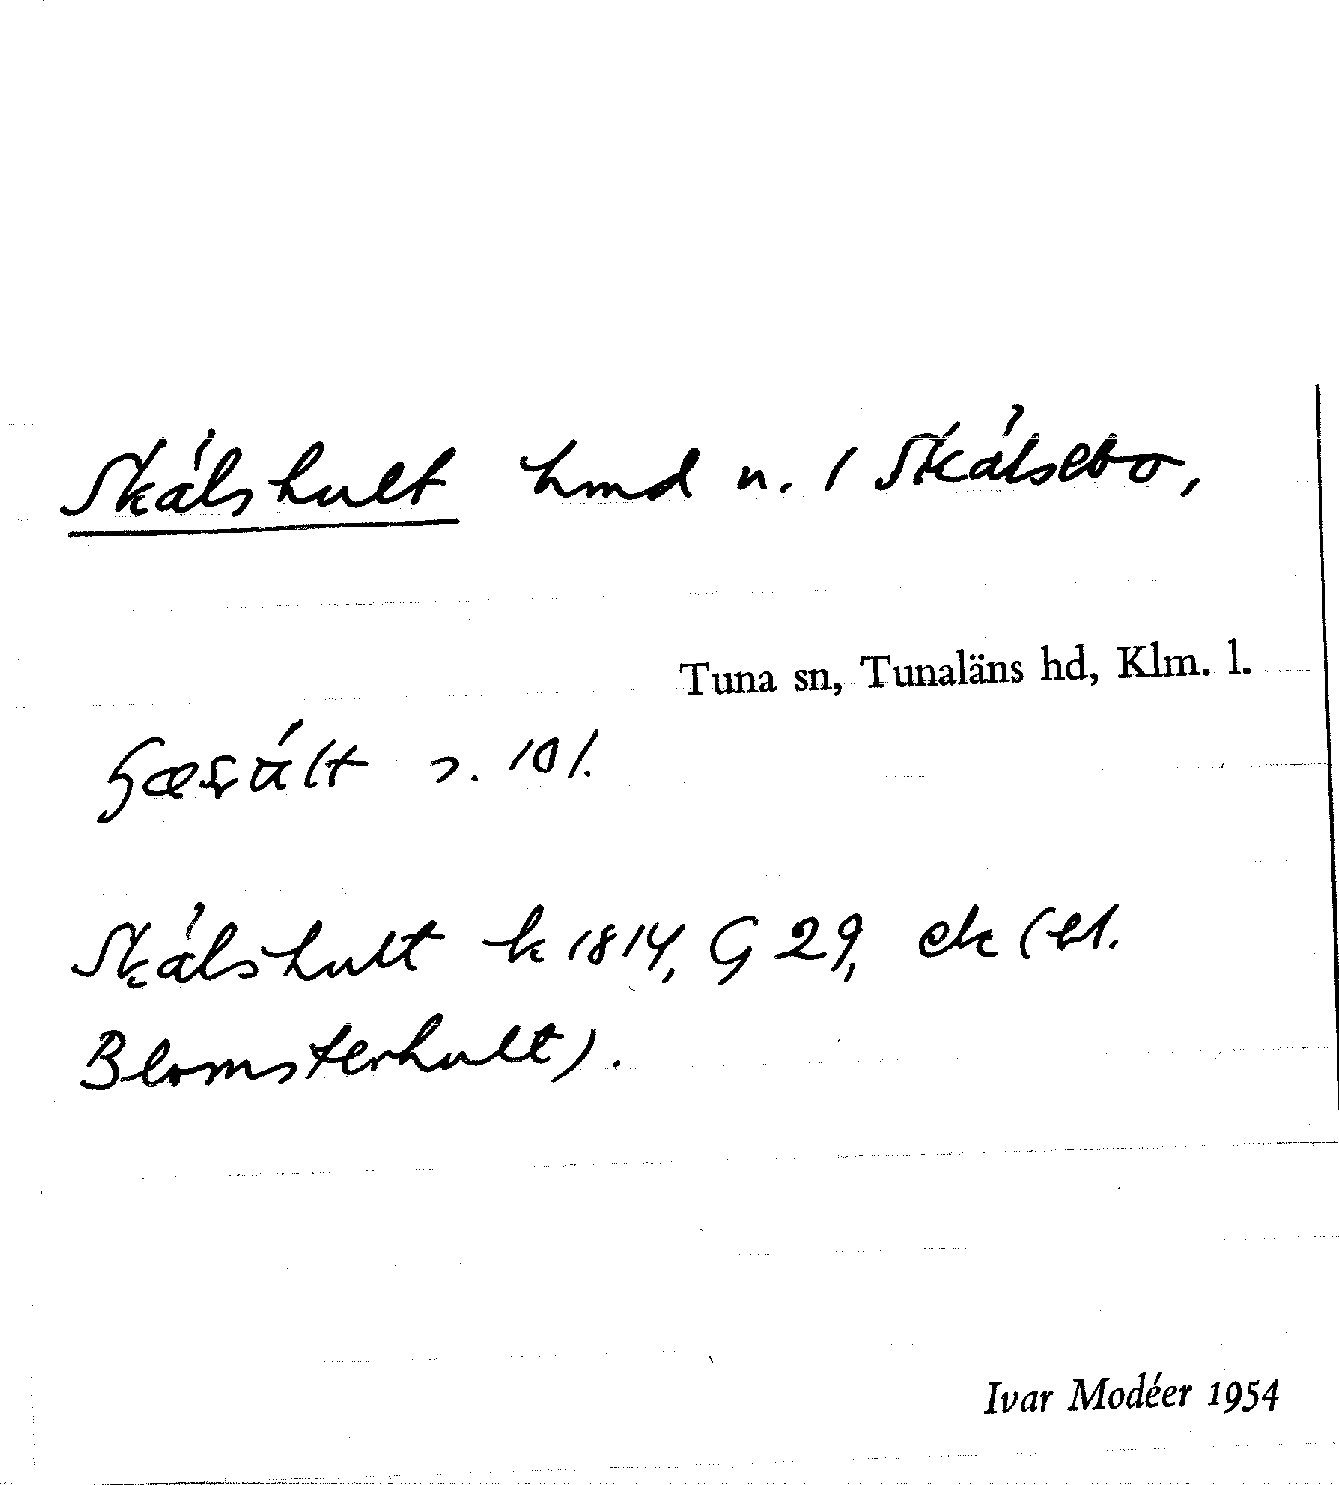 Skålshult hmd u. / Skålsebo,
Tuna sn, Tunaläns hd, Klm. l.
s. 101.
Skålshult k 1814, G 29, ek (bl.
Blomsterhult).
Ivar Modéer 1954